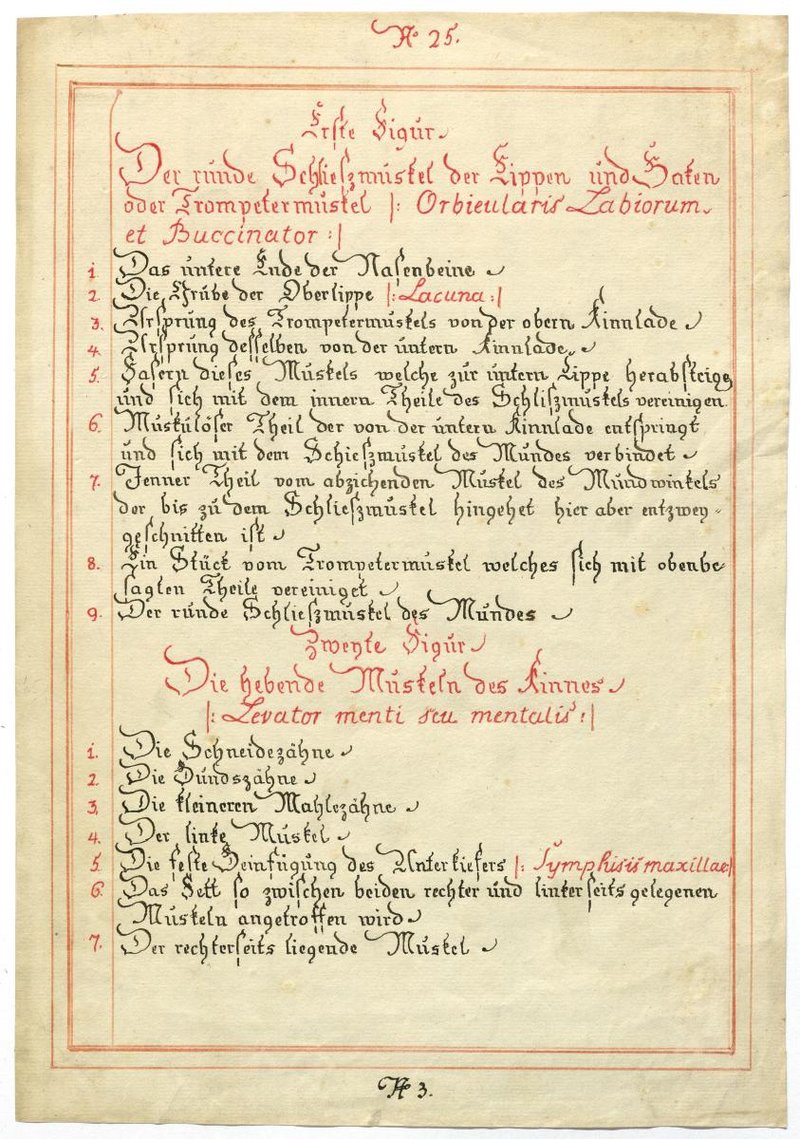 No 25.
Erste Figur
Der runde Schlieszmuskel der Lippen und Baken
oder Trompetermuskel |: Orbicularis Labiorum
et Buccinator :|
1. Das untere Ende der Nasenbeine
2. Die Grube der Oberlippe |: Lacuna :|
3. Ursprung des Trompetermuskels von der obern Kinnlade
4. Ursprung desselben von der untern Kinnlade
5. Fasern dieses Muskels welche zur untern Lippe herabsteigen
und sich mit dem innern Theile des Schliszmuskels vereinigen
6. Muskulöser Theil der von der untern Kinnlade entspringt
und sich mit dem Schieszmuskel des Mundes verbindet
7. Jenner Theil vom abziehenden Muskel des Mundwinkels
der bis zu dem Schlieszmuskel hingehet hier aber entzwey=
geschnitten ist
8. Ein Stück vom Trompetermuskel welches sich mit obenbe
sagten Theile vereiniget
9. Der runde Schlieszmuskel des Mundes
Zweyte Figur
Die hebende Muskeln des Kinnes
|: Levator menti seu mentalis :|
1. Die Schneidezähne
2. Die Hundszähne
3. Die kleineren Mahlezähne
4. Der linke Muskel
5. Die feste Beinfügung des Unterkiefers |: Symphisis maxillae |
6. Das Fett so zwischen beiden rechter und linkerseits gelegenen
Muskeln angetroffen wird
7. Der rechterseits liegende Muskel
No 3.